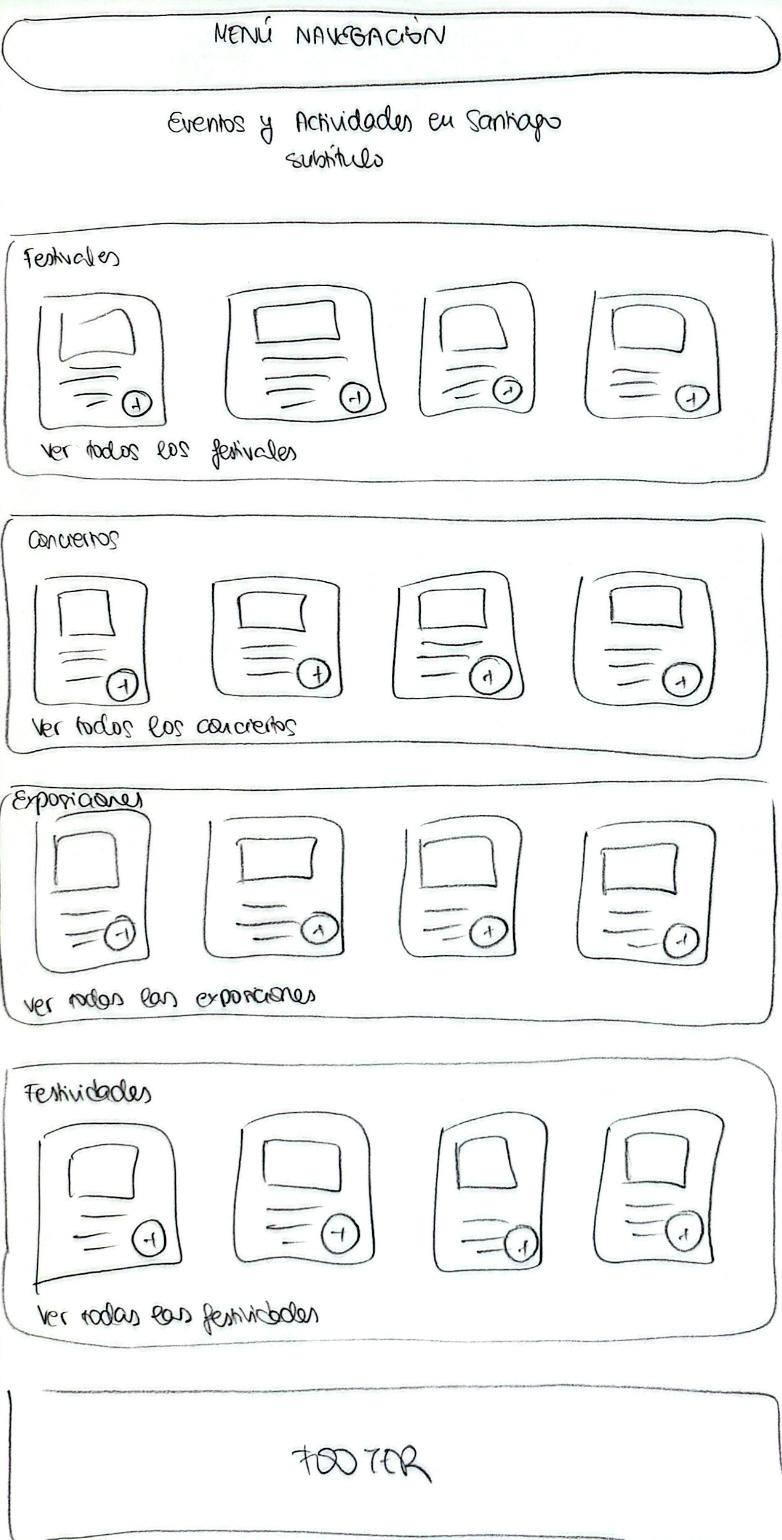 MENÚ NAVEGACIÓN
Eventos y Actividades en Santiago
subtítulo
Festivales
+ + + +
Ver todos los festivales
Conciertos
+ + + +
Ver todos los conciertos
Exposiciones
+ + + +
Ver todas las exposiciones
Festividades
+ + + +
Ver todas las festividades
FOOTER